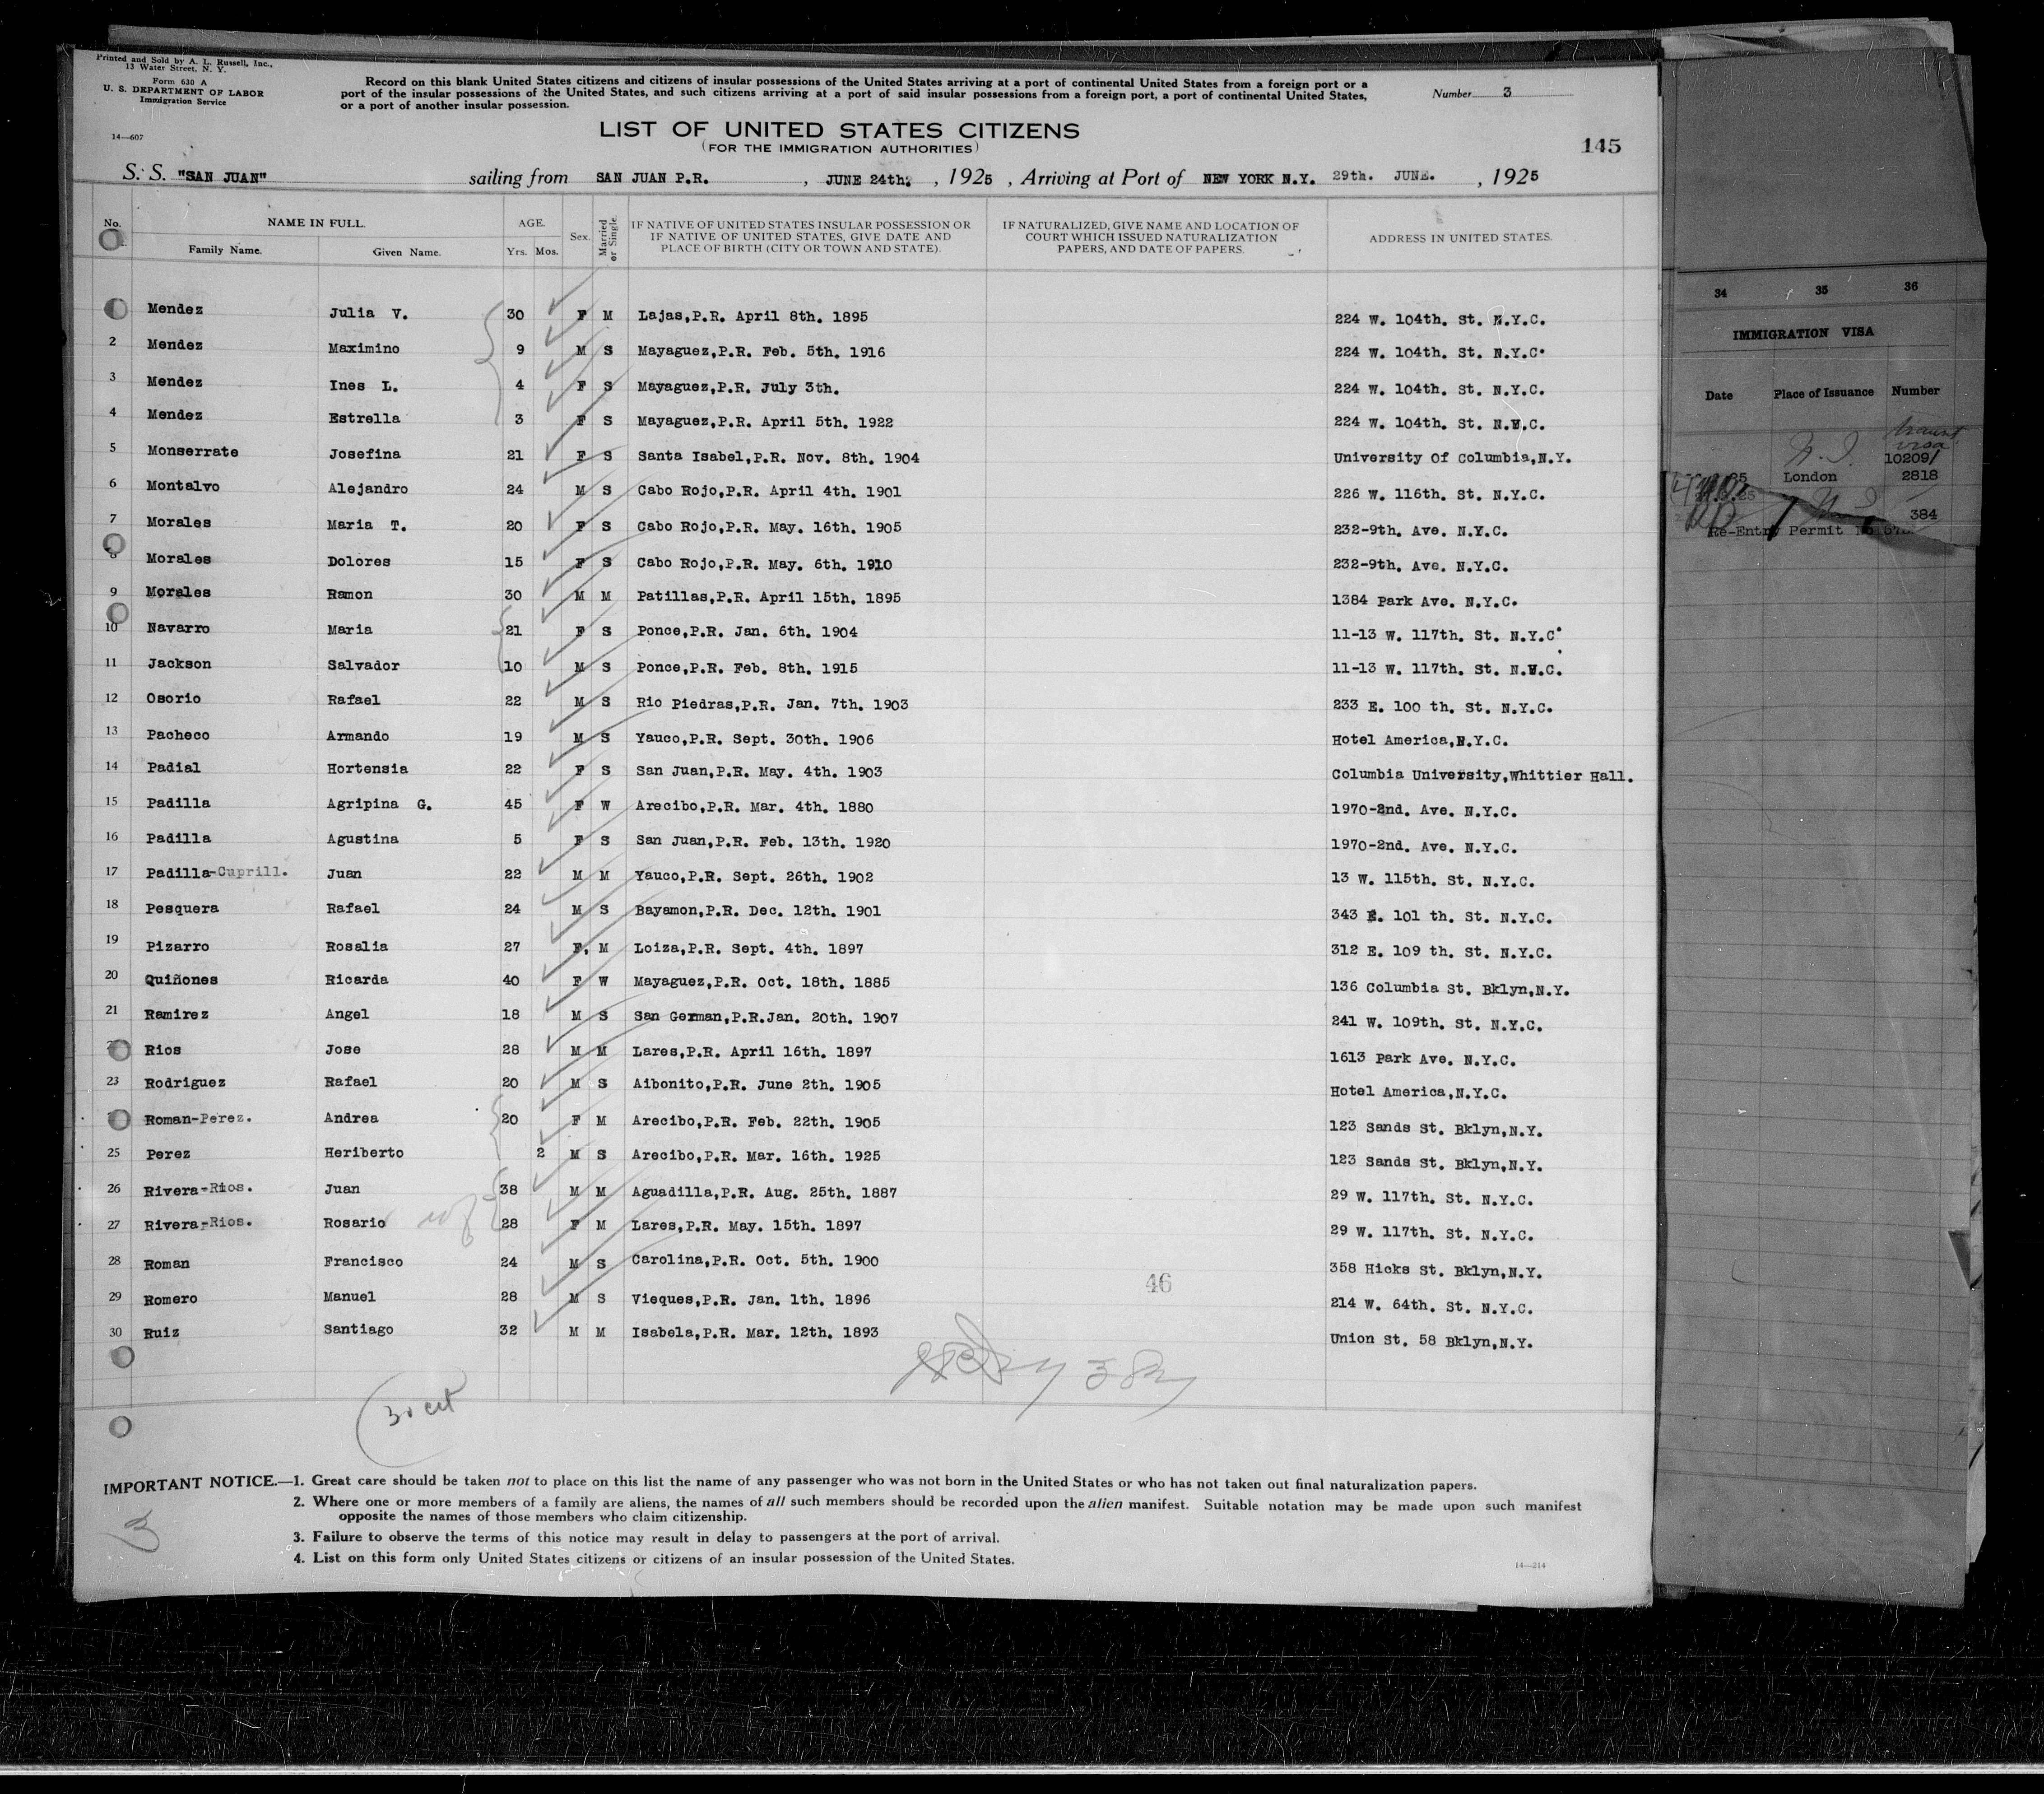 Printed and Sold by A. L. Russell, Inc.,
13 Water Street, N. Y.
Form 630 A
U. S. DEPARTMENT OF LABOR
Immigration Service
14—607
Record on this blank United States citizens and citizens of insular possessions of the United States arriving at a port of continental United States from a foreign port or a
port of the insular possessions of the United States, and such citizens arriving at a port of said insular possessions from a foreign port, a port of continental United States,
or a port of another insular possession.
Number 3
LIST OF UNITED STATES CITIZENS
(FOR THE IMMIGRATION AUTHORITIES)
145
S. S. "SAN JUAN" sailing from SAN JUAN P.R. , JUNE 24th. , 1925 , Arriving at Port of NEW YORK N.Y. 29th. JUNE. , 1925
No. NAME IN FULL. AGE. Sex. Married or Single. IF NATIVE OF UNITED STATES INSULAR POSSESSION OR IF NATIVE OF UNITED STATES, GIVE DATE AND PLACE OF BIRTH (CITY OR TOWN AND STATE). IF NATURALIZED, GIVE NAME AND LOCATION OF COURT WHICH ISSUED NATURALIZATION PAPERS, AND DATE OF PAPERS. ADDRESS IN UNITED STATES.
Family Name. Given Name. Yrs. Mos.
Mendez Julia V. 30 F M Lajas,P.R. April 8th. 1895 224 W. 104th. St. N.Y.C.
2 Mendez Maximino 9 M S Mayaguez,P.R. Feb. 5th. 1916 224 W. 104th. St. N.Y.C.
3 Mendez Ines L. 4 F S Mayaguez,P.R. July 3th. 224 W. 104th. St. N.Y.C.
4 Mendez Estrella 3 F S Mayaguez,P.R. April 5th. 1922 224 W. 104th. St. N.Y.C.
5 Monserrate Josefina 21 F S Santa Isabel,P.R. Nov. 8th. 1904 University Of Columbia,N.Y.
6 Montalvo Alejandro 24 M S Cabo Rojo,P.R. April 4th. 1901 226 W. 116th. St. N.Y.C.
7 Morales Maria T. 20 F S Cabo Rojo,P.R. May. 16th. 1905 232-9th. Ave. N.Y.C.
8 Morales Dolores 15 F S Cabo Rojo,P.R. May. 6th. 1910 232-9th. Ave. N.Y.C.
9 Morales Ramon 30 M M Patillas,P.R. April 15th. 1895 1384 Park Ave. N.Y.C.
10 Navarro Maria 21 F S Ponce,P.R. Jan. 6th. 1904 11-13 W. 117th. St. N.Y.C.
11 Jackson Salvador 10 M S Ponce,P.R. Feb. 8th. 1915 11-13 W. 117th. St. N.Y.C.
12 Osorio Rafael 22 M S Rio Piedras,P.R. Jan. 7th. 1903 233 E. 100 th. St. N.Y.C.
13 Pacheco Armando 19 M S Yauco,P.R. Sept. 30th. 1906 Hotel America,N.Y.C.
14 Padial Hortensia 22 F S San Juan,P.R. May. 4th. 1903 Columbia University,Whittier Hall.
15 Padilla Agripina G. 45 F W Arecibo,P.R. Mar. 4th. 1880 1970-2nd. Ave. N.Y.C.
16 Padilla Agustina 5 F S San Juan,P.R. Feb. 13th. 1920 1970-2nd. Ave. N.Y.C.
17 Padilla-Cuprill. Juan 22 M M Yauco,P.R. Sept. 26th. 1902 13 W. 115th. St. N.Y.C.
18 Pesquera Rafael 24 M S Bayamon,P.R. Dec. 12th. 1901 343 E. 101 th. St. N.Y.C.
19 Pizarro Rosalia 27 F. M Loiza,P.R. Sept. 4th. 1897 312 E. 109 th. St. N.Y.C.
20 Quiñones Ricarda 40 F W Mayaguez,P.R. Oct. 18th. 1885 136 Columbia St. Bklyn,N.Y.
21 Ramirez Angel 18 M S San German,P.R.Jan. 20th. 1907 241 W. 109th. St. N.Y.C.
Rios Jose 28 M M Lares,P.R. April 16th. 1897 1613 Park Ave. N.Y.C.
23 Rodriguez Rafael 20 M S Aibonito,P.R. June 2th. 1905 Hotel America,N.Y.C.
Roman-Perez. Andrea 20 F M Arecibo,P.R. Feb. 22th. 1905 123 Sands St. Bklyn,N.Y.
25 Perez Heriberto 2 M S Arecibo,P.R. Mar. 16th. 1925 123 Sands St. Bklyn,N.Y.
26 Rivera-Rios. Juan 38 M M Aguadilla,P.R. Aug. 25th. 1887 29 W. 117th. St. N.Y.C.
27 Rivera-Rios. Rosario 28 F M Lares,P.R. May. 15th. 1897 29 W. 117th. St. N.Y.C.
28 Roman Francisco 24 M S Carolina,P.R. Oct. 5th. 1900 358 Hicks St. Bklyn,N.Y.
29 Romero Manuel 28 M S Vieques,P.R. Jan. 1th. 1896 214 W. 64th. St. N.Y.C.
30 Ruiz Santiago 32 M M Isabela,P.R. Mar. 12th. 1893 Union St. 58 Bklyn,N.Y.
46
30 cit
IMPORTANT NOTICE.—1. Great care should be taken not to place on this list the name of any passenger who was not born in the United States or who has not taken out final naturalization papers.
2. Where one or more members of a family are aliens, the names of all such members should be recorded upon the alien manifest. Suitable notation may be made upon such manifest
opposite the names of those members who claim citizenship.
3. Failure to observe the terms of this notice may result in delay to passengers at the port of arrival.
4. List on this form only United States citizens or citizens of an insular possession of the United States.
14—214
3
34 35 36
IMMIGRATION VISA
Date Place of Issuance Number
visa
10209/
London 2818
384
Re-Entry Permit